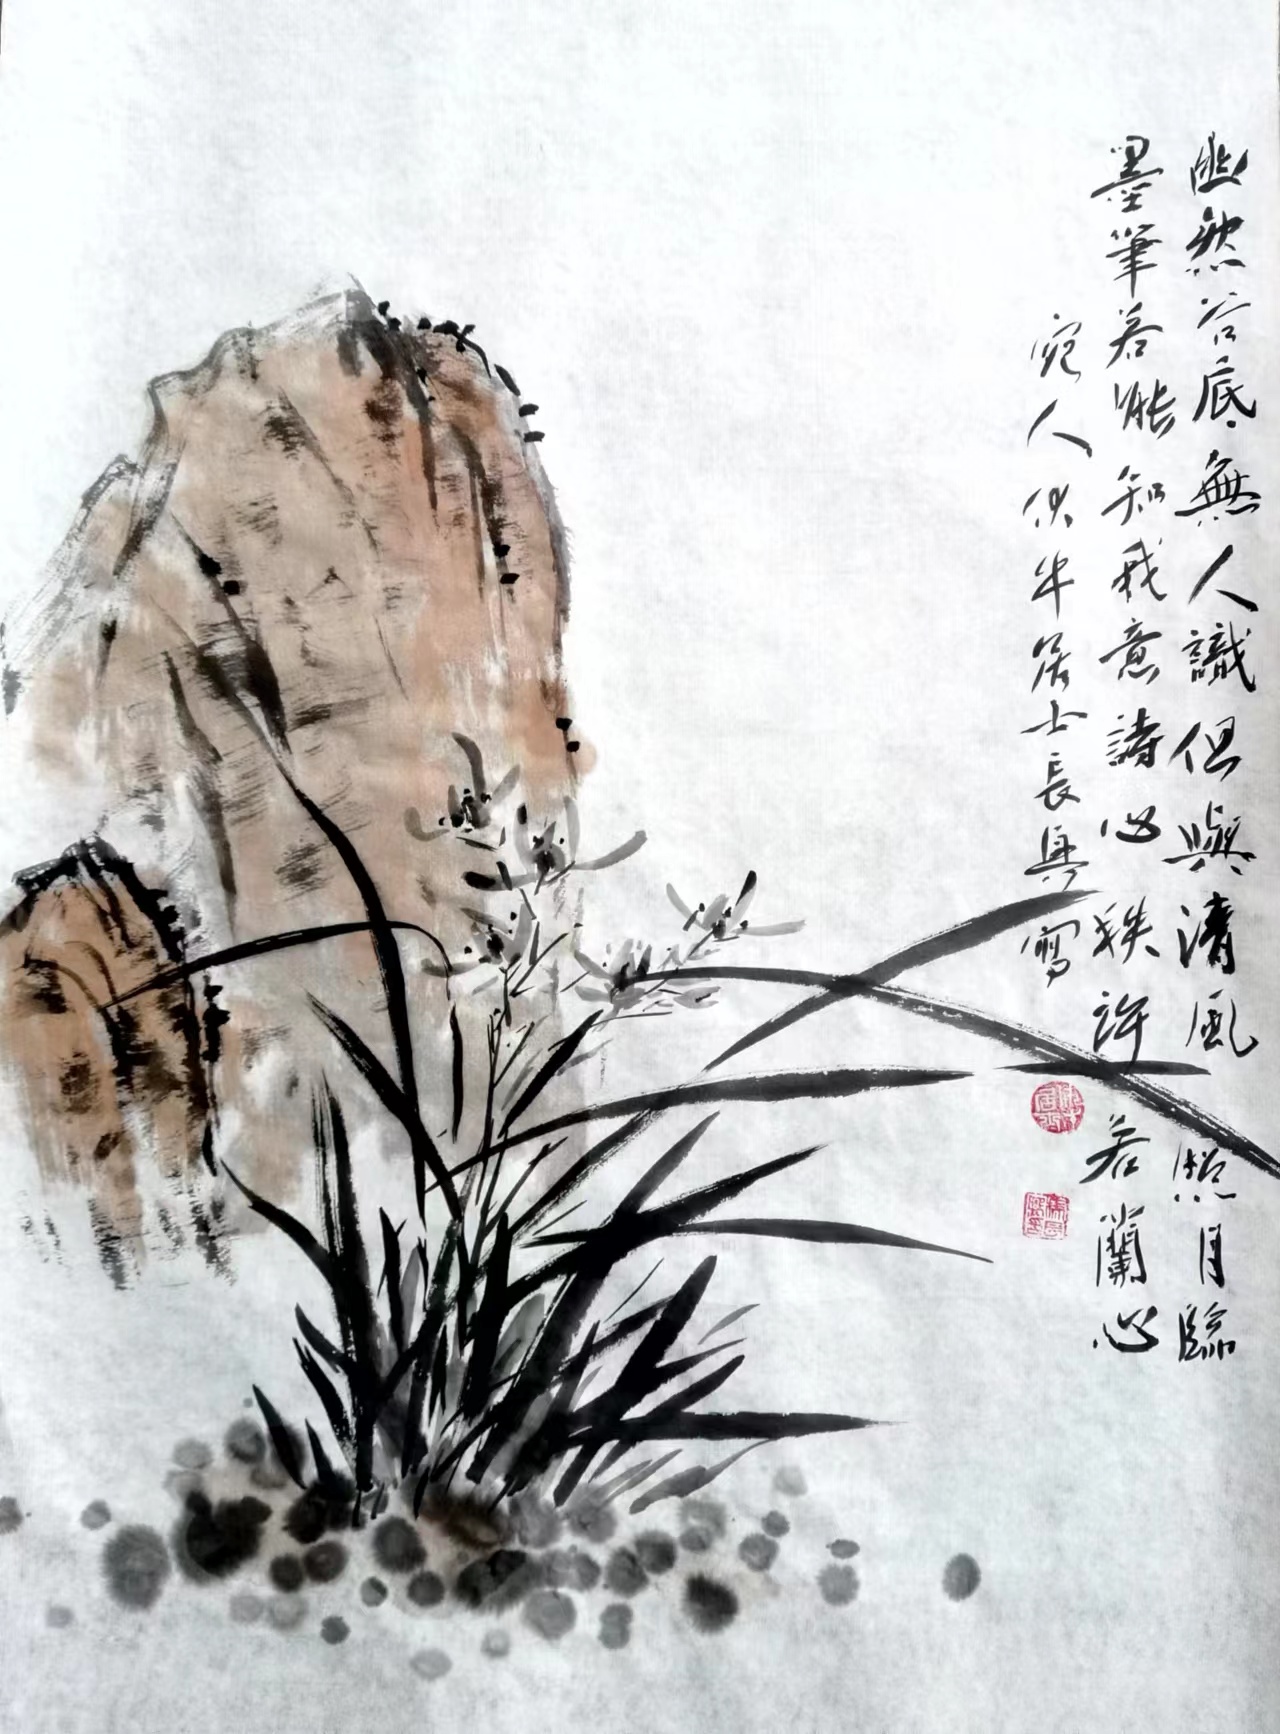 幽然谷底無人識但與清風照月臨
墨筆若能知我意詩心秩許若蘭心
宛人伏牛居士長興寫